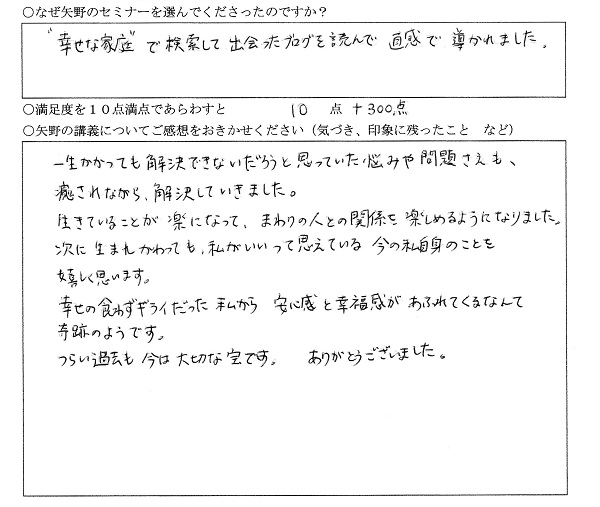 ○なぜ矢野のセミナーを選んでくださったのですか？
"幸せな家庭" で検索して出会ったブログを読んで 直感で 導かれました。
○満足度を１０点満点であらわすと 10 点 +300点
○矢野の講義についてご感想をおきかせください（気づき、印象に残ったこと など）
一生かかっても解決できないだろうと思っていた悩みや問題さえも、
癒されながら、解決していきました。
生きていることが 楽になって、まわりの人との関係を楽しめるようになりました。
次に生まれかわっても、私がいいって思えている 今の私自身のことを
嬉しく思います。
幸せの食わずギライだった私から 安心感と幸福感があふれてくるなんて
奇跡のようです。
つらい過去も今は大切な宝です。 ありがとうございました。